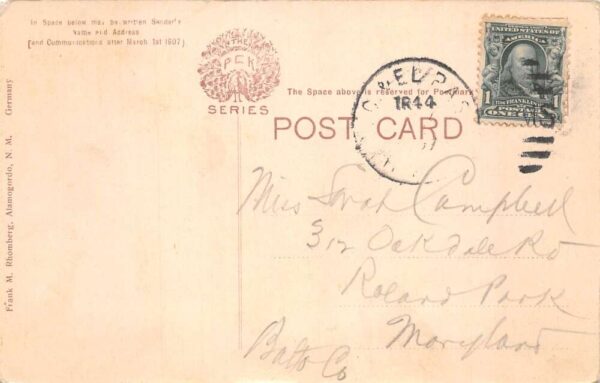 In Space below may be written Sender's
Name and Address
(and Communications after March 1st 1907)
THE
PCK
SERIES
The Space above is reserved for Postmark
POST CARD
UNITED STATES OF
AMERICA
1
FRANKLIN
POSTAGE
ONE
& EL PASO
1R44
Miss Sarah Campbell
312 Oakdale Rd
Roland Park
Maryland
Balto Co
Frank M. Rhomberg, Alamogordo, N. M. Germany